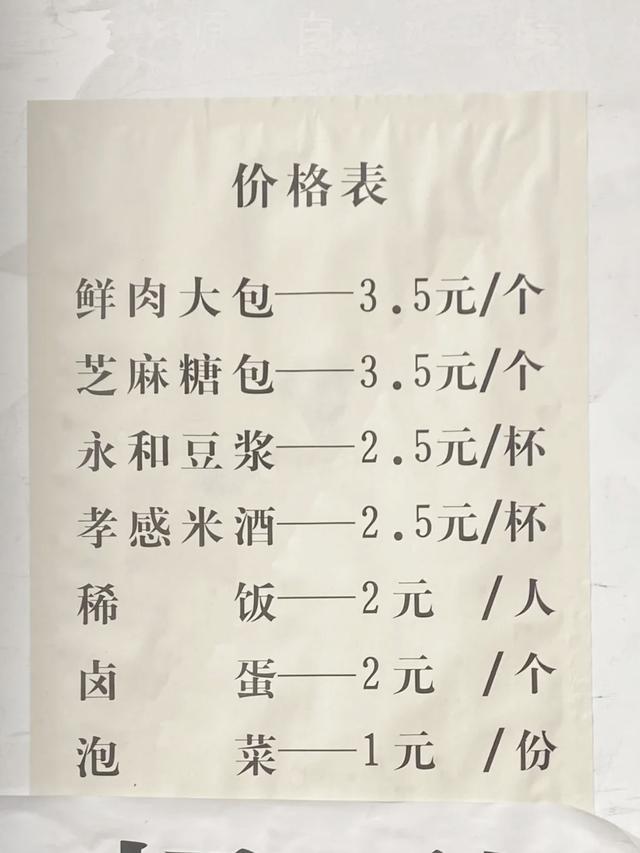 价格表
鲜肉大包——3.5元/个
芝麻糖包——3.5元/个
永和豆浆——2.5元/杯
孝感米酒——2.5元/杯
稀 饭——2元 /人
卤 蛋——2元 /个
泡 菜——1元 /份